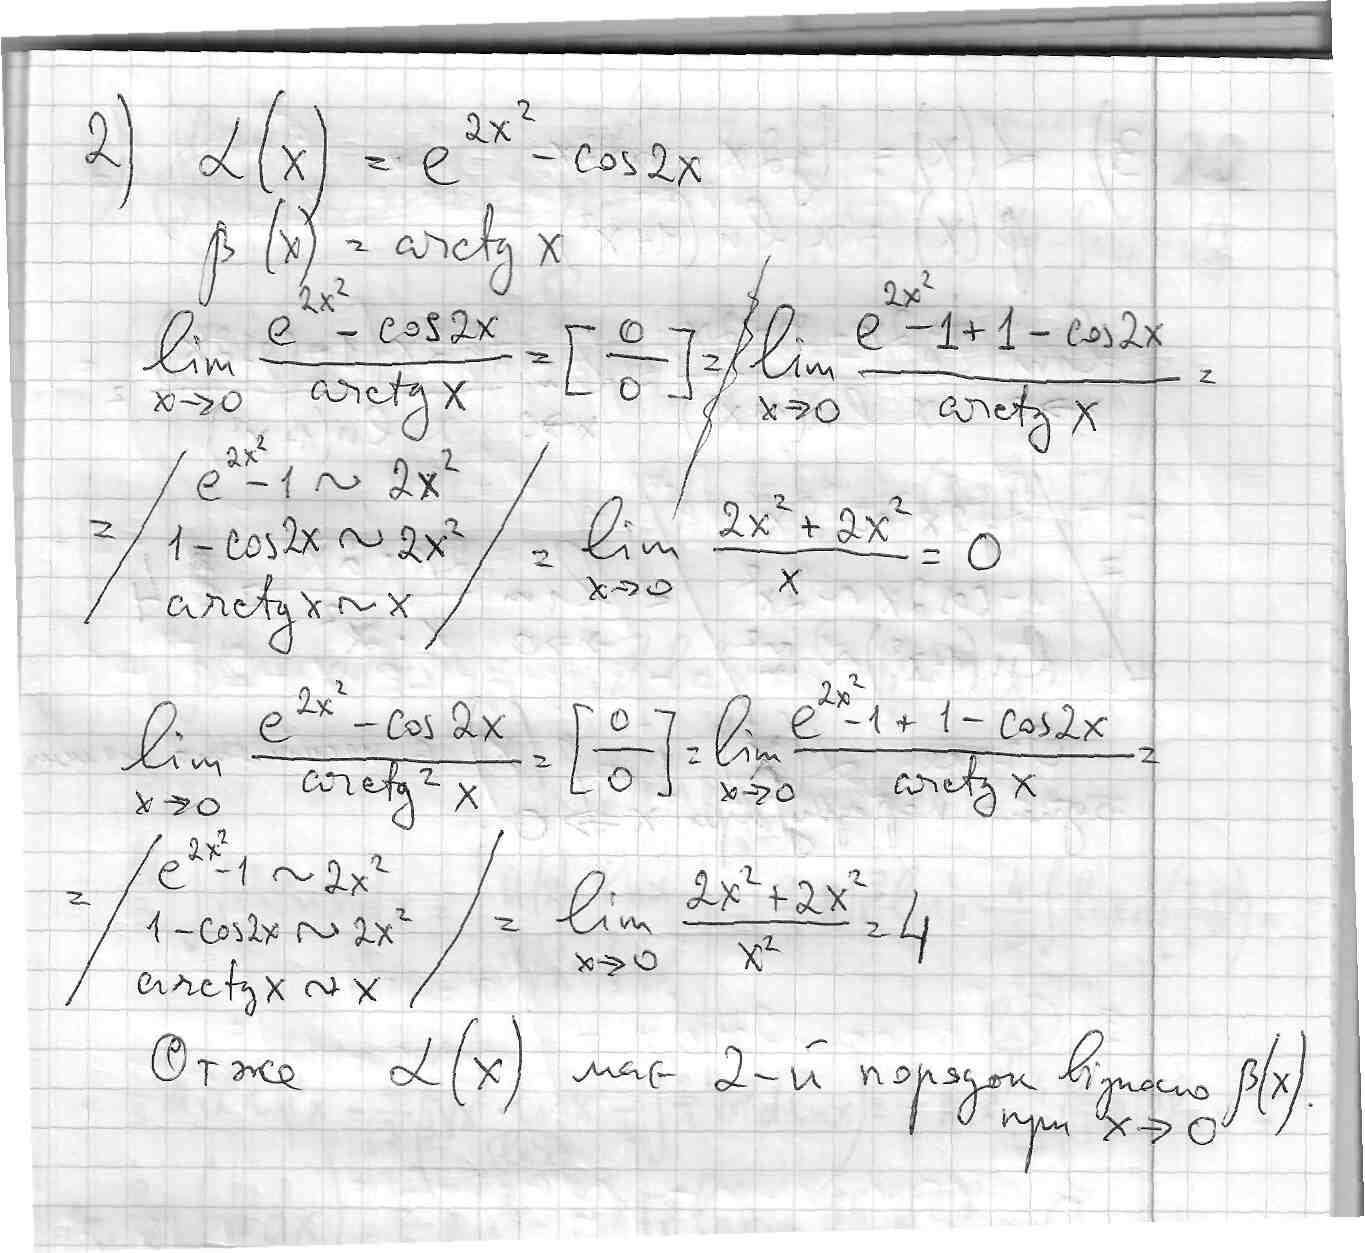 2) α(x) = e^{2x^2} - cos2x
β(x) = arctg x
lim_{x→0} \frac{e^{2x^2} - cos2x}{arctg x} = [\frac{0}{0}] = lim_{x→0} \frac{e^{2x^2} - 1 + 1 - cos2x}{arctg x} =
= / e^{2x^2} - 1 ~ 2x^2
1 - cos2x ~ 2x^2
arctg x ~ x / = lim_{x→0} \frac{2x^2 + 2x^2}{x} = 0
lim_{x→0} \frac{e^{2x^2} - cos2x}{arctg^2 x} = [\frac{0}{0}] = lim_{x→0} \frac{e^{2x^2} - 1 + 1 - cos2x}{arctg x} =
= / e^{2x^2} - 1 ~ 2x^2
1 - cos2x ~ 2x^2
arctg x ~ x / = lim_{x→0} \frac{2x^2 + 2x^2}{x^2} = 4
Отже α(x) має 2-й порядок відносно β(x).
при x→0